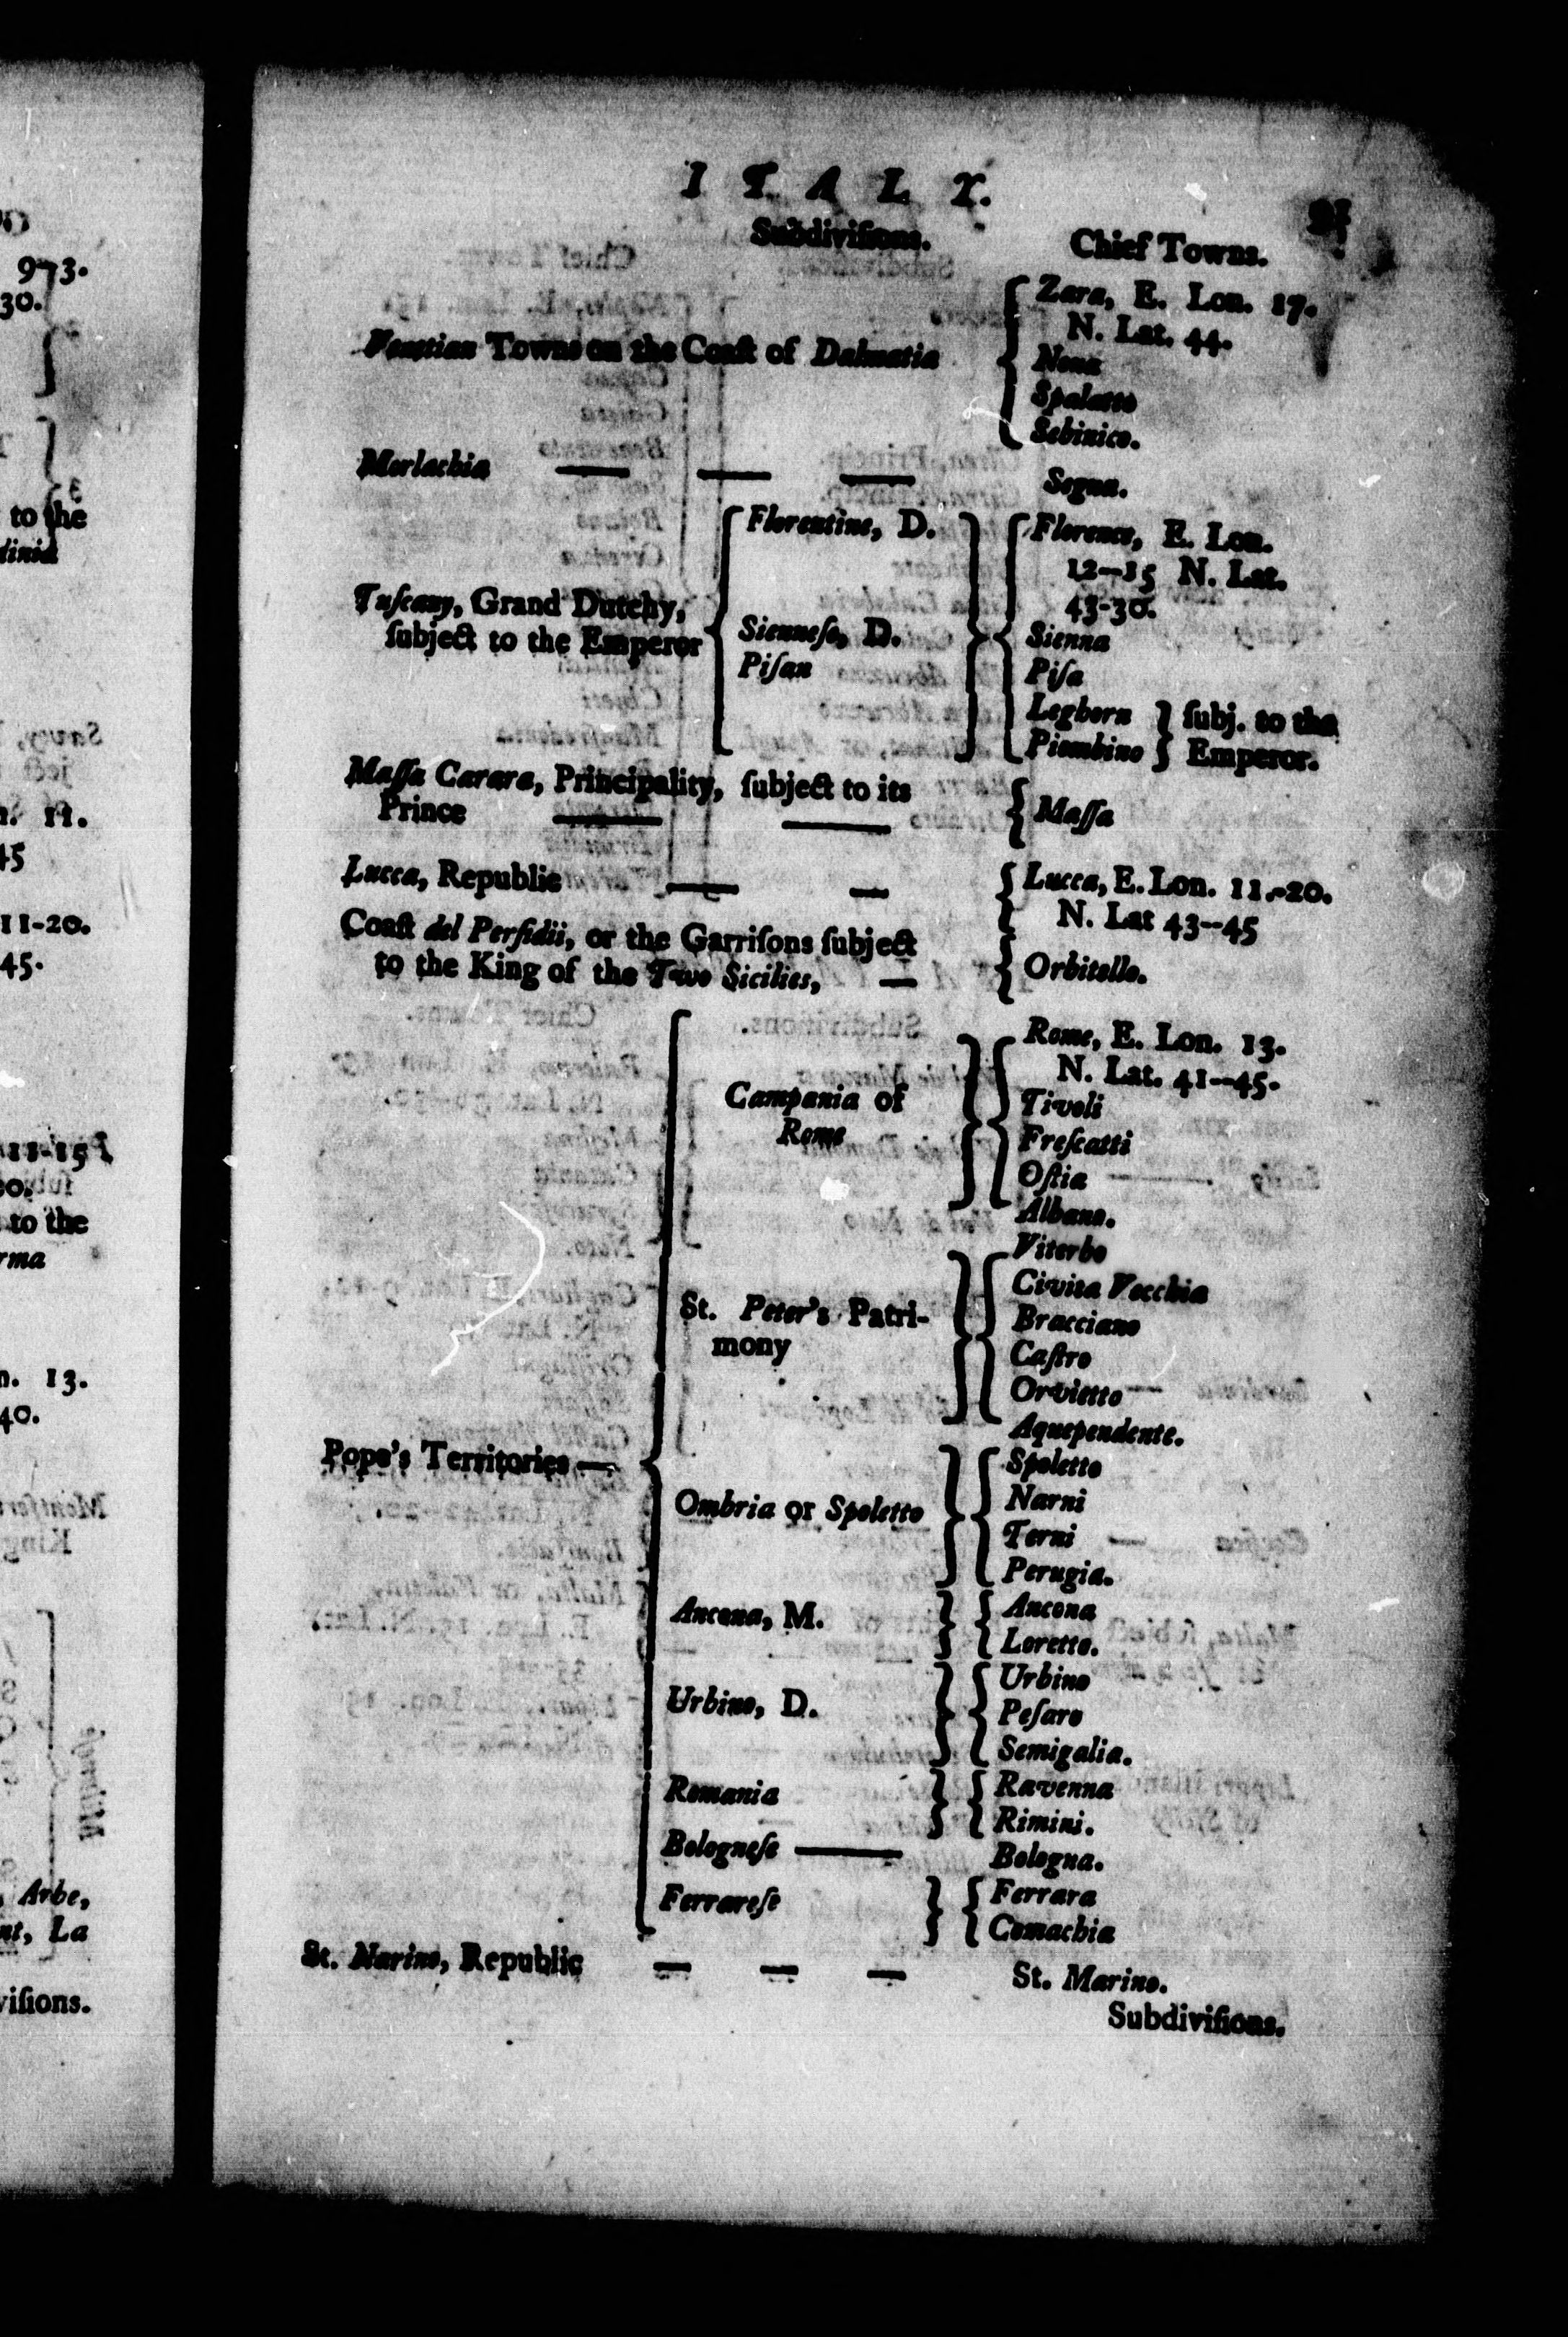 I T A L Y.
Subdiviſions. Chief Towns.
Zara, E. Lon. 17.
N. Lat. 44.
Venetian Towns on the Coaſt of Dalmatia
Nona
Spalatto
Sebinico.
Morlachia — — — Segna.
Florentine, D. Florence, E. Lon.
12--15 N. Lat.
43-30.
Tuſcany, Grand Dutchy,
ſubject to the Emperor
Sienneſe, D. Sienna
Piſan Piſa
Leghorn } ſubj. to the
Piombino } Emperor.
Maſſa Carara, Principality, ſubject to its
Prince — — { Maſſa
Lucca, Republic — — { Lucca, E. Lon. 11.-20.
N. Lat 43--45
Coaſt del Perſidii, or the Garriſons ſubject
to the King of the Two Sicilies, — { Orbitello.
Pope's Territories —
Campania of
Rome
Rome, E. Lon. 13.
N. Lat. 41--45.
Tivoli
Freſcatti
Oſtia
Albano.
St. Peter's Patri-
mony
Viterbo
Civita Vecchia
Bracciano
Caſtro
Orvietto
Aquependente.
Ombria or Spoletto
Spoletto
Narni
Terni
Perugia.
Ancona, M.
Ancona
Loretto.
Urbino, D.
Urbino
Peſaro
Semigalia.
Romania
Ravenna
Rimini.
Bologneſe — Bologna.
Ferrareſe
Ferrara
Comachia
St. Marino, Republic — — — St. Marino.
Subdiviſions.
973.
30.
to the
11.
45
11-20.
45.
11-15
to the
13.
40.
Arbe,
La
viſions.